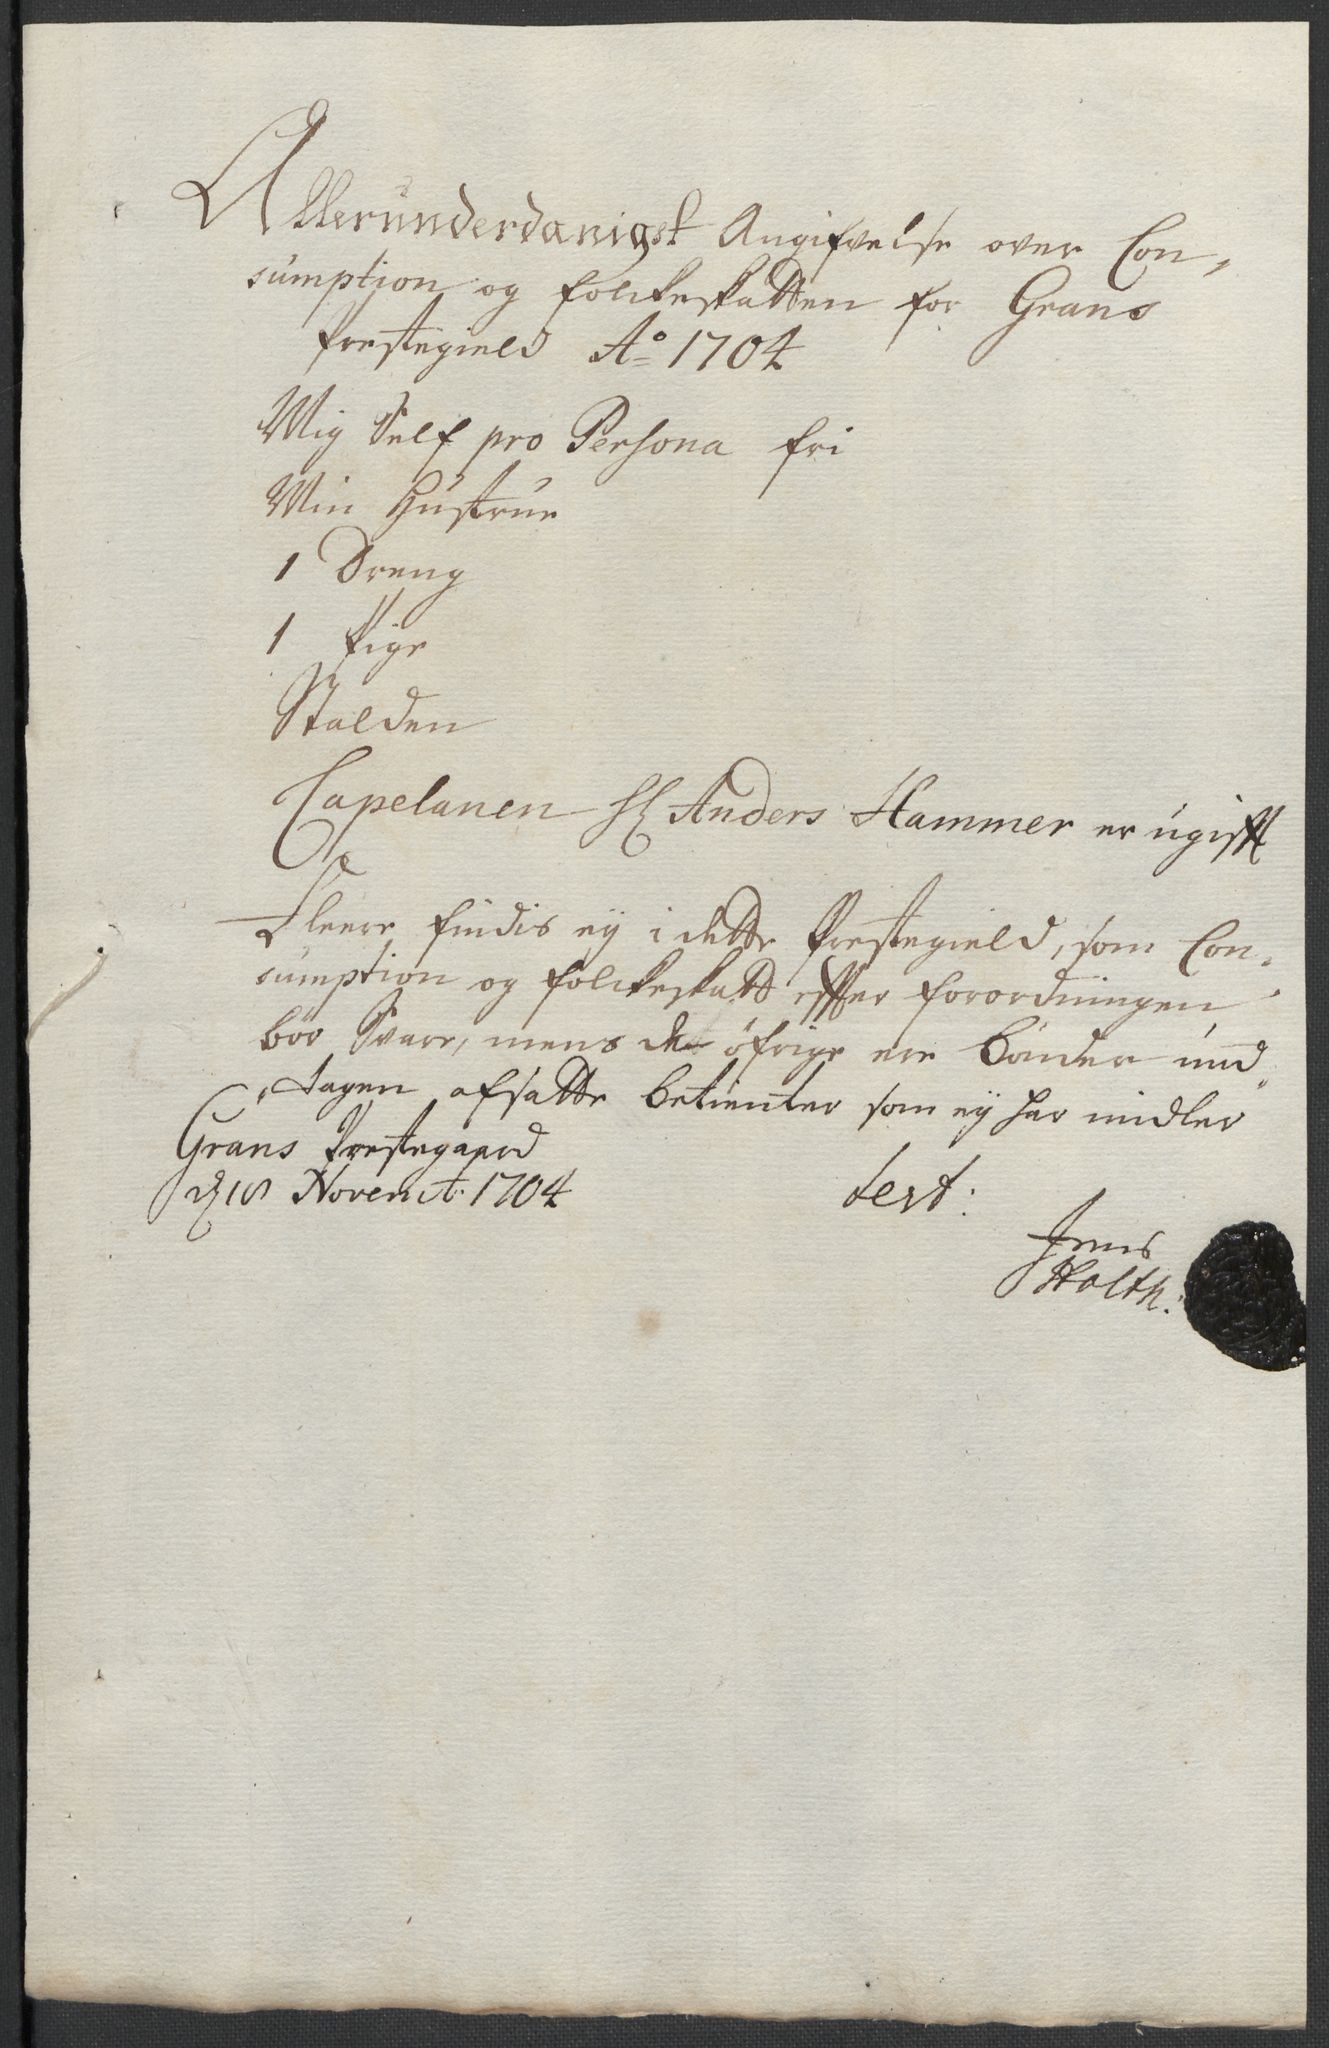 Allerunderdanigst Angifvelse over Con,
sumption og folckeskatten for Grans
Prestegield Ao 1704
Mig Self pro Persona fri
Min Hustrue
1 Dreng
1 Pige
Stalden
Capelanen Hr Anders Hammer er ugifft
Fleere findis ey i dette Prestegield, som Con,
sumption og folckeskatt effter forordningen
bör Svare, mens de öfrige ere bönder und
,tagen afsatte betienter som ey har midler
Grans Prestegaard
Novemb: 1704
test:
Jens
Holth.